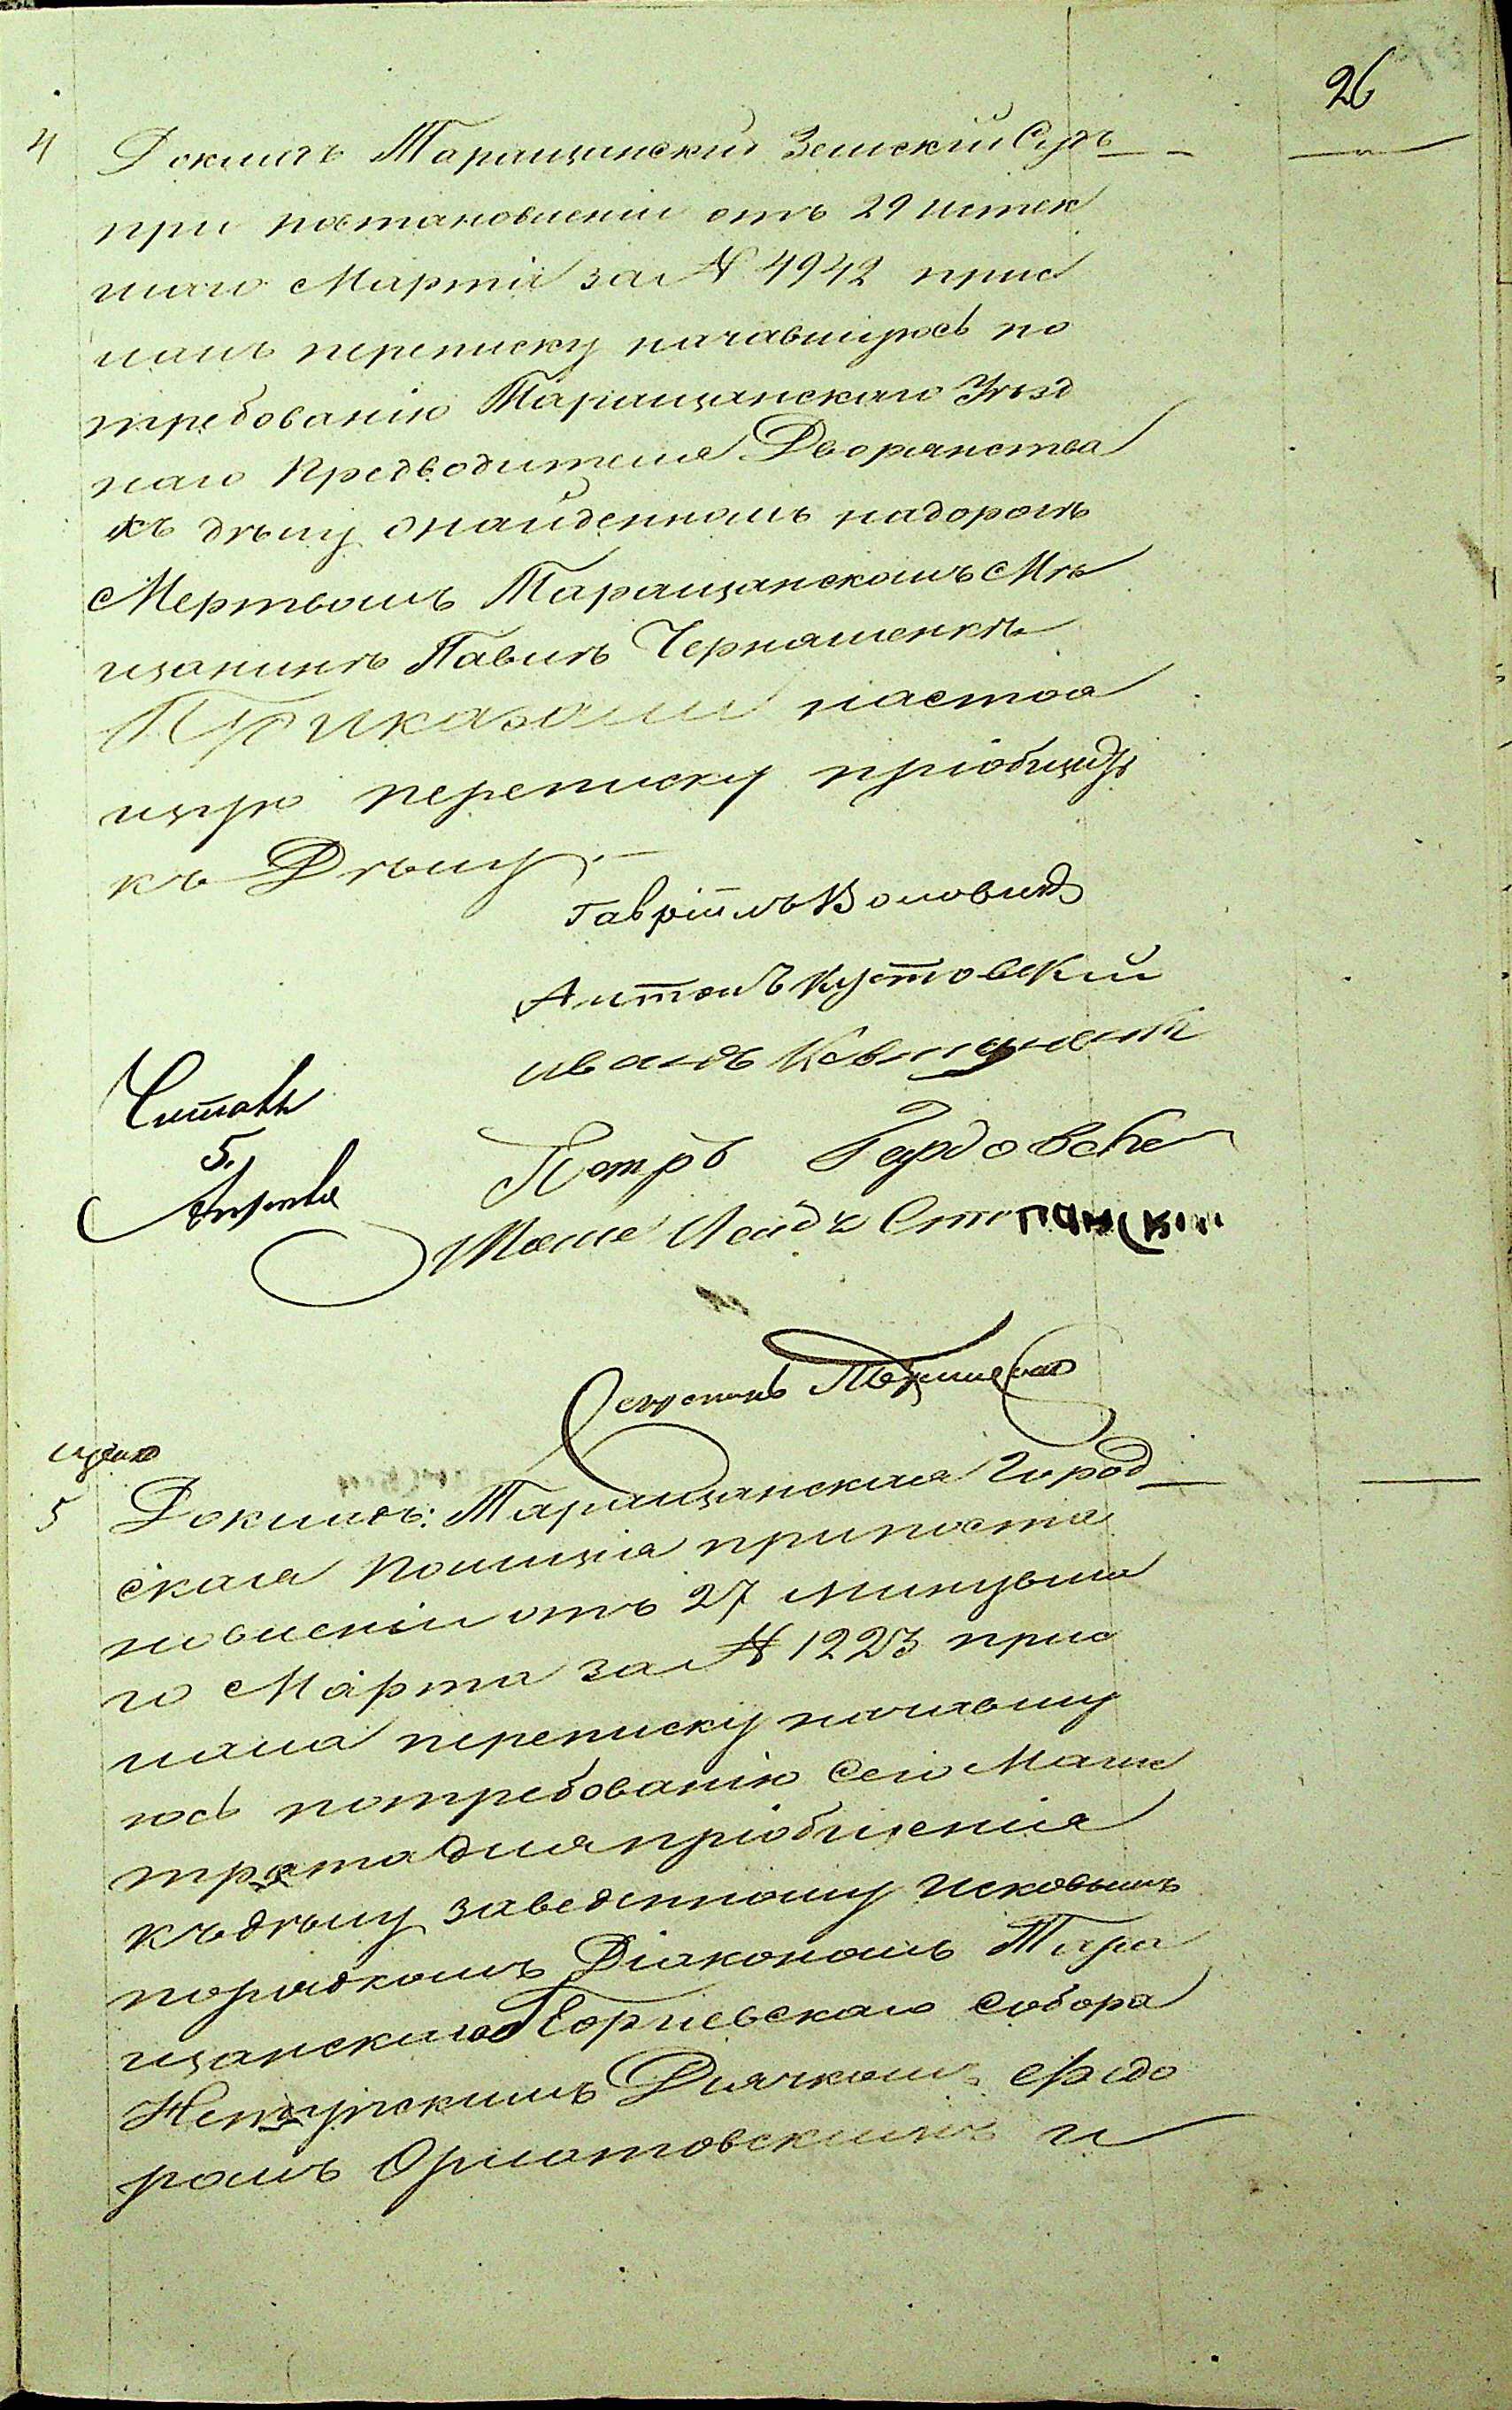 26
4 Докладъ Таращанский Земскій Судъ
при постановленіи отъ 29 истек
шаго Марта за № 4942 прис
лалъ переписку начавшуюсь по
требованію Таращанскаго Уѣзд
наго Предводителя Дворянства
къ дѣлу онайденномъ надорогѣ
Мертвомъ Таращанскомъ Мѣ
щанинѣ Павлѣ Чернашенкѣ
Приказали настоя
щую переписку пріобщить
къ Дѣлу.
Гавріилъ Воловикъ
Антонъ Кустовскій
Иванъ
Читалъ
5.
Апрѣля
Петръ
Секретарь
5 Докладъ: Таращанская Город
ская Полиція припоста
новленіи отъ 27 минувша
го Марта за № 1223 прис
лала переписку начавшу
юсь потребованію сего Магис
трата дляпріобщенія
къдѣлу заведенному исковымъ
порядкомъ Діакономъ Тара
щанскаго Георгіевскаго собора
Дьячкомъ Федо
ромъ Орлотовскимъ и